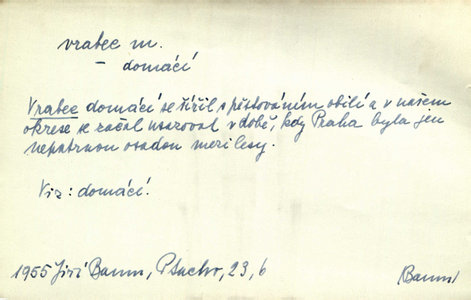 vrabec m.
– domácí
Vrabec domácí se šířil s pěstováním obilí a v našem
okrese se začal usazovat v době, kdy Praha byla jen
nepatrnou osadou mezi lesy.
Viz: domácí.
1955 Jiří Baum, Ptactvo, 23, 6
Baum